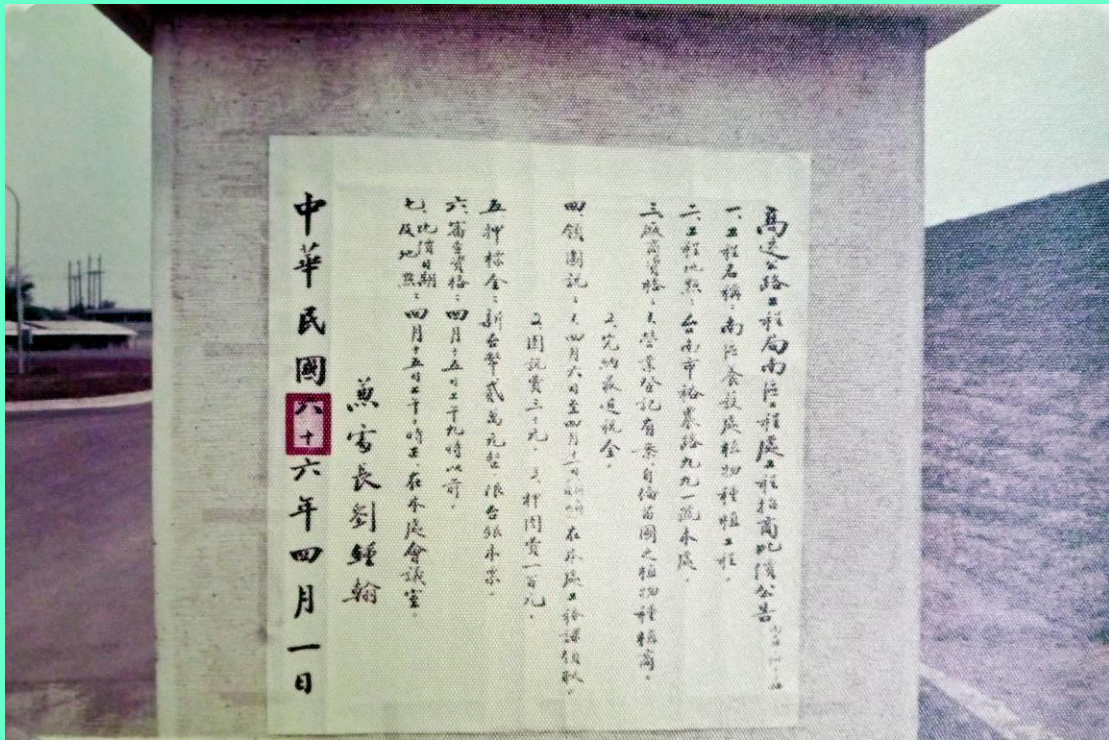 高速公路工程局南區工程處工程招商比價公告
一、工程名稱：南區餐飲處植物種植工程。
二、工程地點：台南市裕農路九九一號本處。
三、廠商資格：1.營業登記有案，自備苗圃之植物種植商。
2.完納最近稅金。
四、領圖說：1.四月六日至四月十一日 在本處工務課領取。
2.圖說費三十元。3.押圖費一百元。
五、押標金：新台幣貳萬元整 限台銀本票。
六、審查資格：四月十五日上午九時以前。
七、比價日期及地點：四月十五日上午十時正，在本處會議室。
兼處長劉鍾翰
中華民國六十六年四月一日